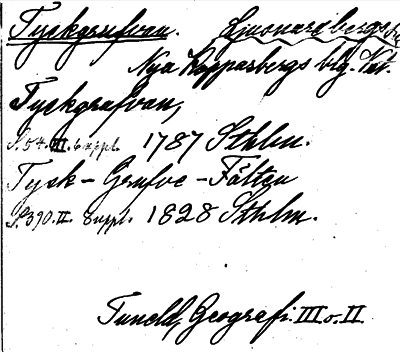 Tyskgrufvan. Ljusnarsbergs
Nya Kopparbergs blg. Vst.
Tyskgrufvan,
S. 54. III. 6 uppl. 1787 Sthlm.
Tysk-Grufve-Fälten
S. 390. II. 8 uppl. 1828 Sthlm.
Tuneld, Geografi. III o. II